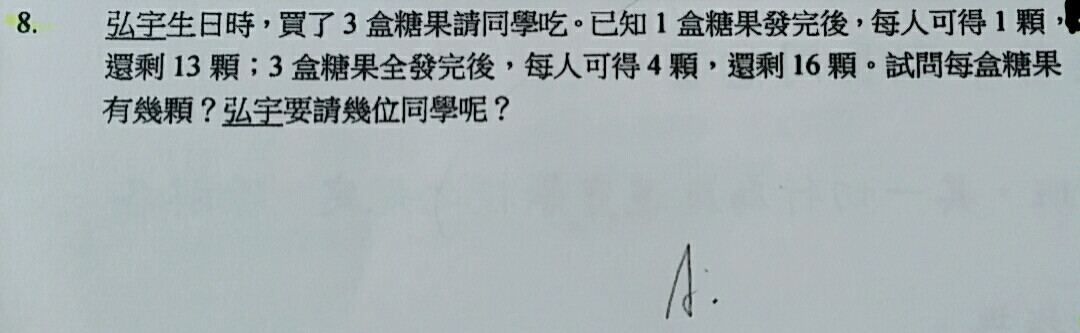 8. 弘宇生日時，買了 3 盒糖果請同學吃。已知 1 盒糖果發完後，每人可得 1 顆，
還剩 13 顆；3 盒糖果全發完後，每人可得 4 顆，還剩 16 顆。試問每盒糖果
有幾顆？弘宇要請幾位同學呢？
A: